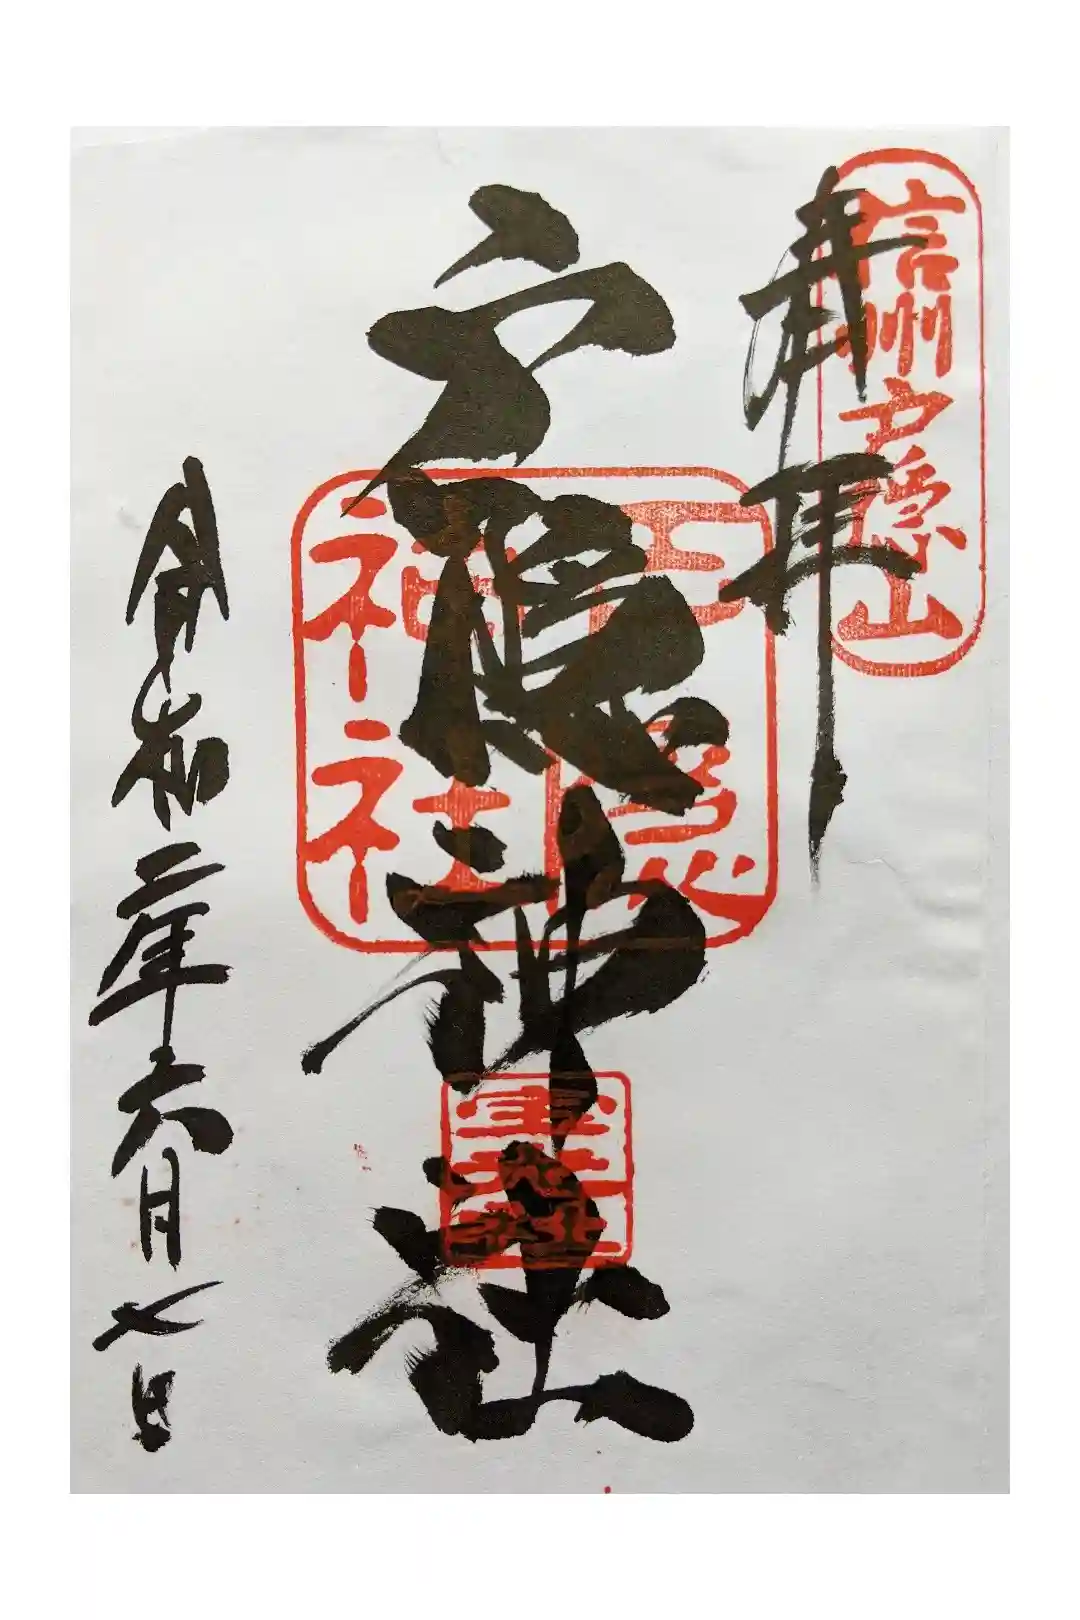 信州戸隠山
奉拝
戸隠神社
戸隠
神社
宝光社
令和二年六月七日